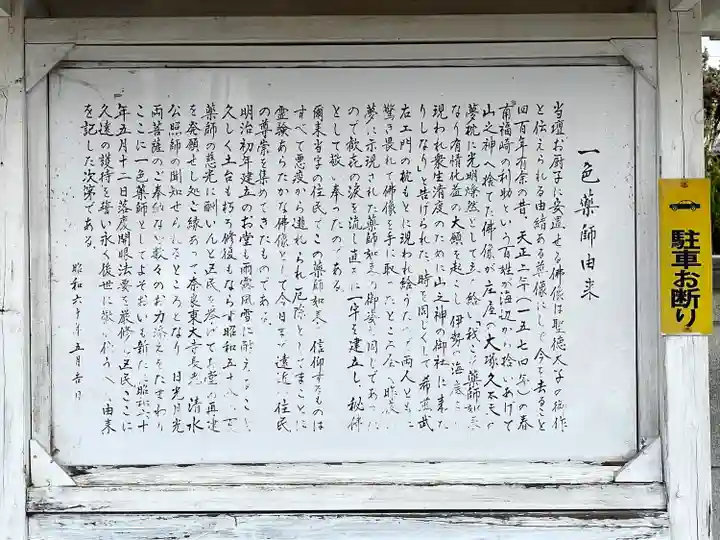 一色薬師由来
当壇お厨子に安置せる佛像は聖徳太子の御作
と伝えられる由緒ある尊像にして今を去ること
四百年有余の昔、天正二年（一五七四年）の春
南福崎の利助という百姓が海辺から拾いあげて
山之神へ捨てた佛像が庄屋の大塚久太夫の
夢枕に光明燦然として立ち給い「我こそ薬師如来
なり有情化益の大願を起こし伊勢の海底より
現われ衆生済度のために山之神の御社に来た
りしなり」と告げられた、時を同じくして希菴武
右エ門の枕もとに現われ給うた 両人ともに
驚き畏れて佛像を手に取ったところ 昨夜
夢に示現された薬師如来の御姿と同じであった
ので歓喜の涙を流し直ちに一宇を建立し、秘佛
として敬い奉ったのである
爾来当字の住民でこの薬師如来を信仰するものは
すべて悪疫から遁れられ厄除としてまことに
霊験あらたかな佛像として今日まで遠近の住民
の尊崇を集めてきたものである。
明治初年建立のお堂も雨露風雪に耐えること
久しく土台も朽ち修復もならず昭和五十八
薬師の慈光に酬いんと区民を挙げて本堂の再建
を発願せし処ご縁あって奈良東大寺長老 清水
公照師の聞知せられるところとなり 日光月光
両菩薩のご奉納など数々のお力添えをたまわり
ここに一色薬師としてよそおいも新たに昭和六十
年五月十二日落慶開眼法要を厳修し区民ここに
久遠の護持を誓い永く後世に伝 由来
を記した次第である。
昭和六十年五月吉日
駐車お断り